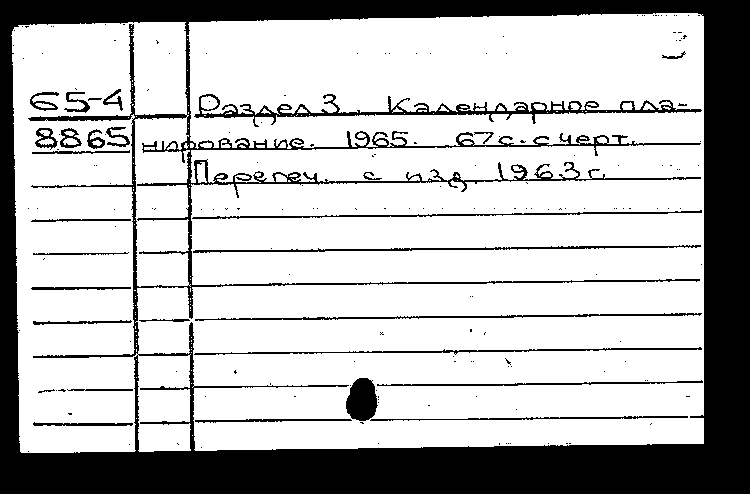 3
65-4 Раздел 3. Календарное пла-
8865 нирование. 1965. 67с. с черт.
Перепеч. с изд. 1963г.